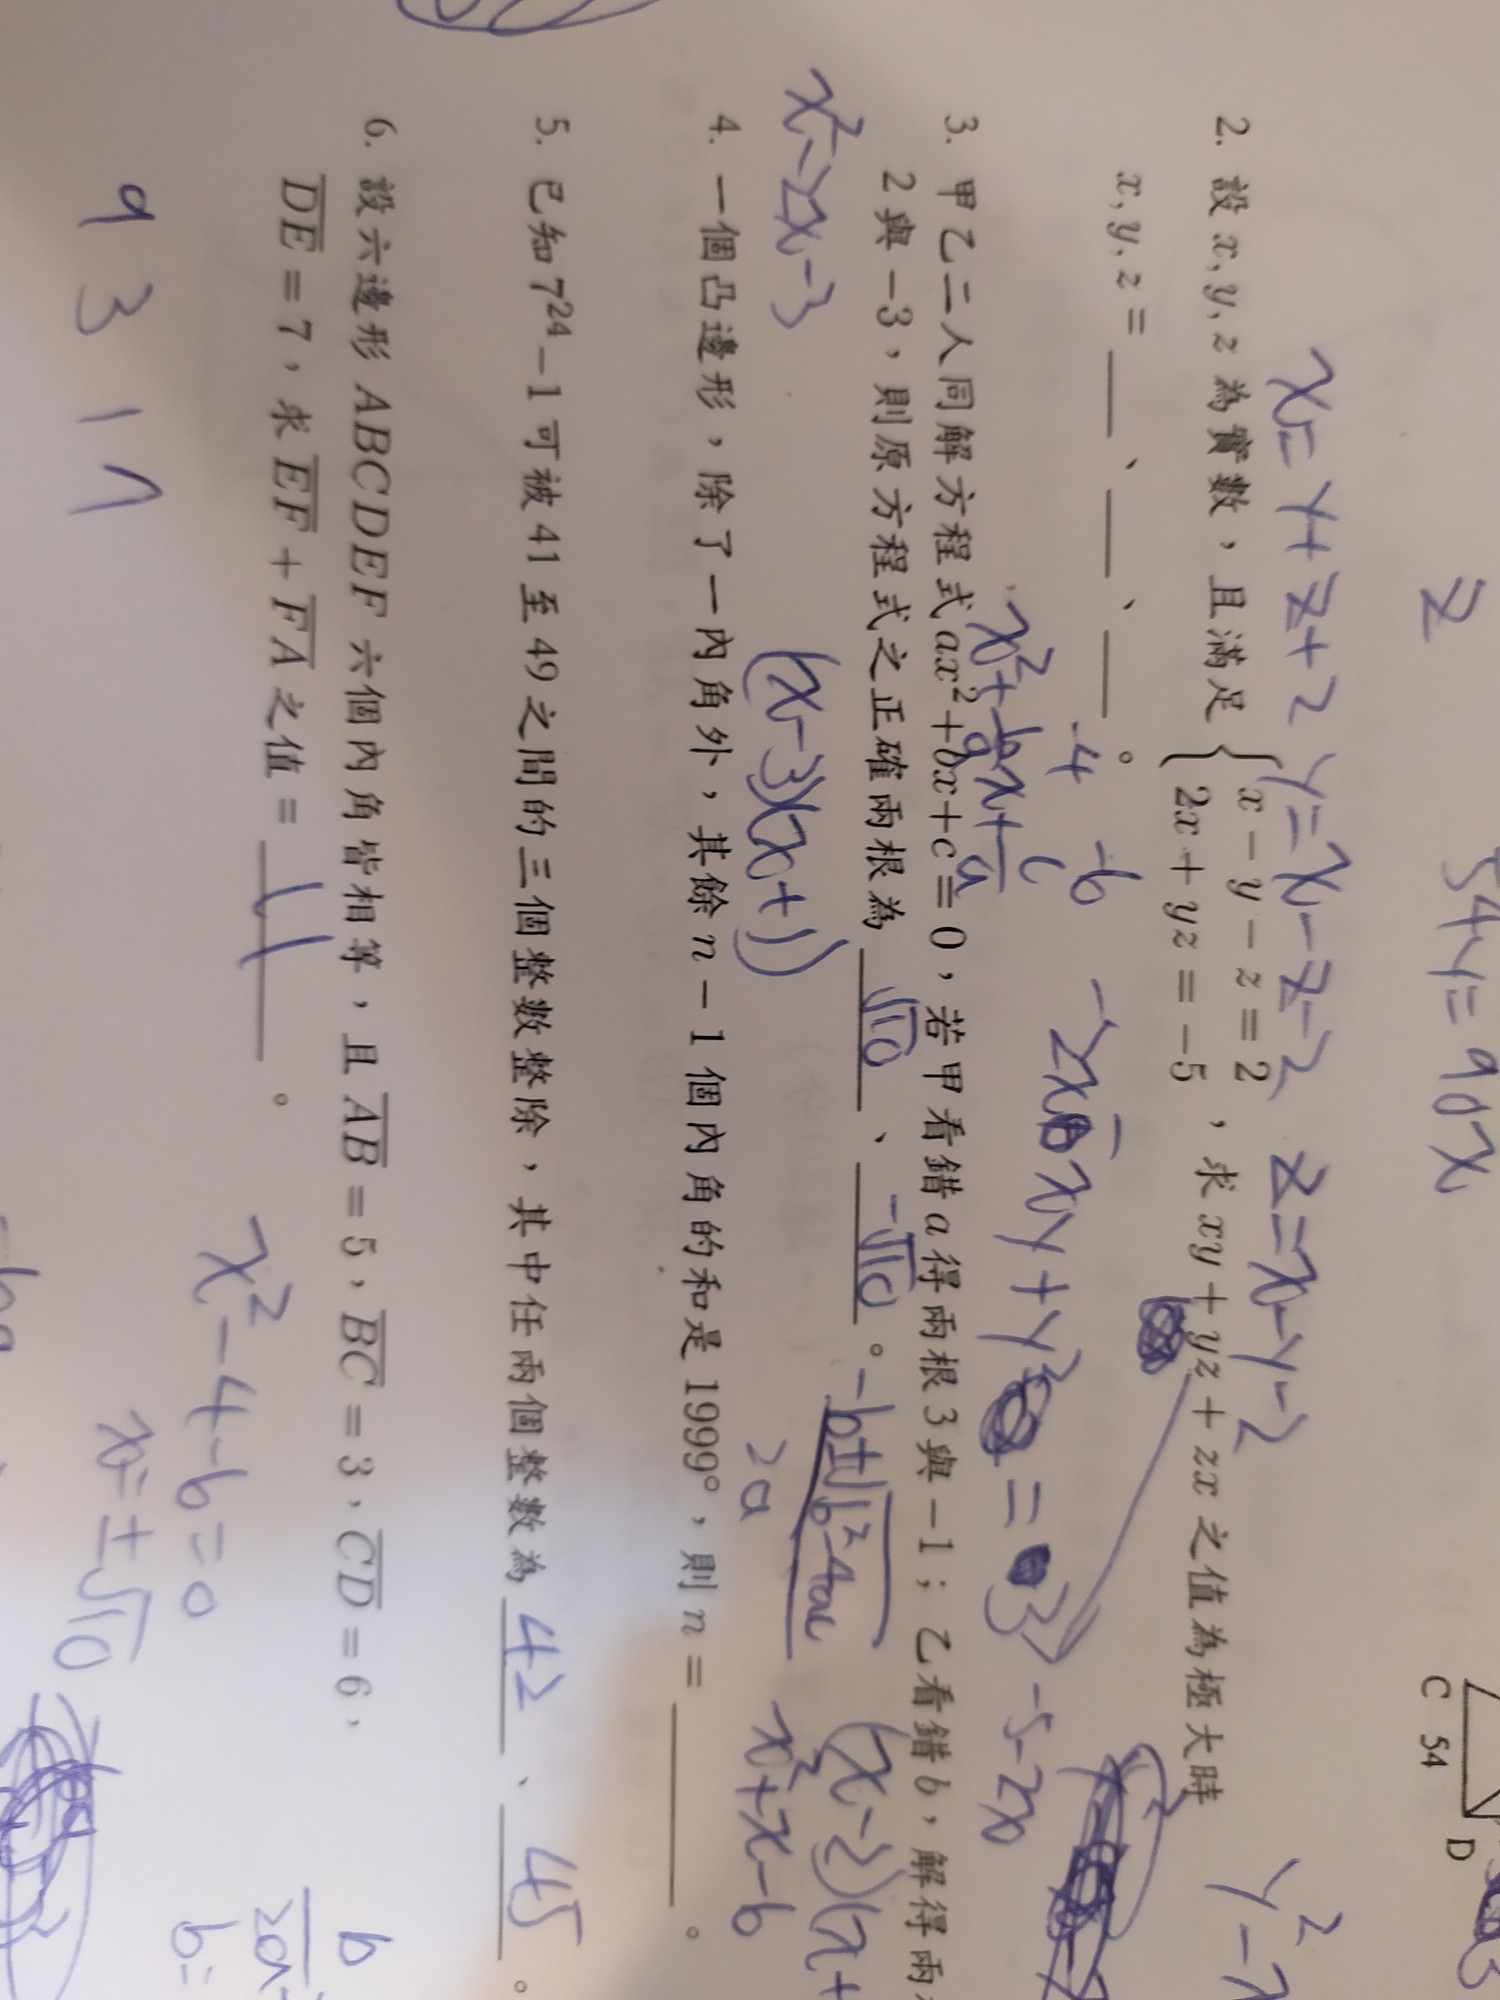 z
54y=90x
C 54 D
x=y+z+2 y=x-z-2 z=x-y-2
2. 設 x, y, z 為實數，且滿足 { x - y - z = 2
2x + yz = -5 ，求 xy + yz + zx 之值為極大時
x, y, z = ____、____、____。
-4 -6
3. 甲乙二人同解方程式 ax²+bx+c = 0，若甲看錯 a 得兩根 3 與 -1；乙看錯 b，解得兩
2 與 -3，則原方程式之正確兩根為 √10 、 -√10 。
x²-2x-3
(x-3)(x+1)
-b±√b²-4ac
2a
x²+x-6
-5-2x
4. 一個凸邊形，除了一內角外，其餘 n - 1 個內角的和是 1999°，則 n = ____。
5. 已知 7²⁴-1 可被 41 至 49 之間的三個整數整除，其中任兩個整數為 42 、 45 。
6. 設六邊形 ABCDEF 六個內角皆相等，且 AB = 5、BC = 3、CD = 6、
DE = 7，求 EF + FA 之值 = 11 。
x²-4-6=0
x=±√10
9 3 1 7